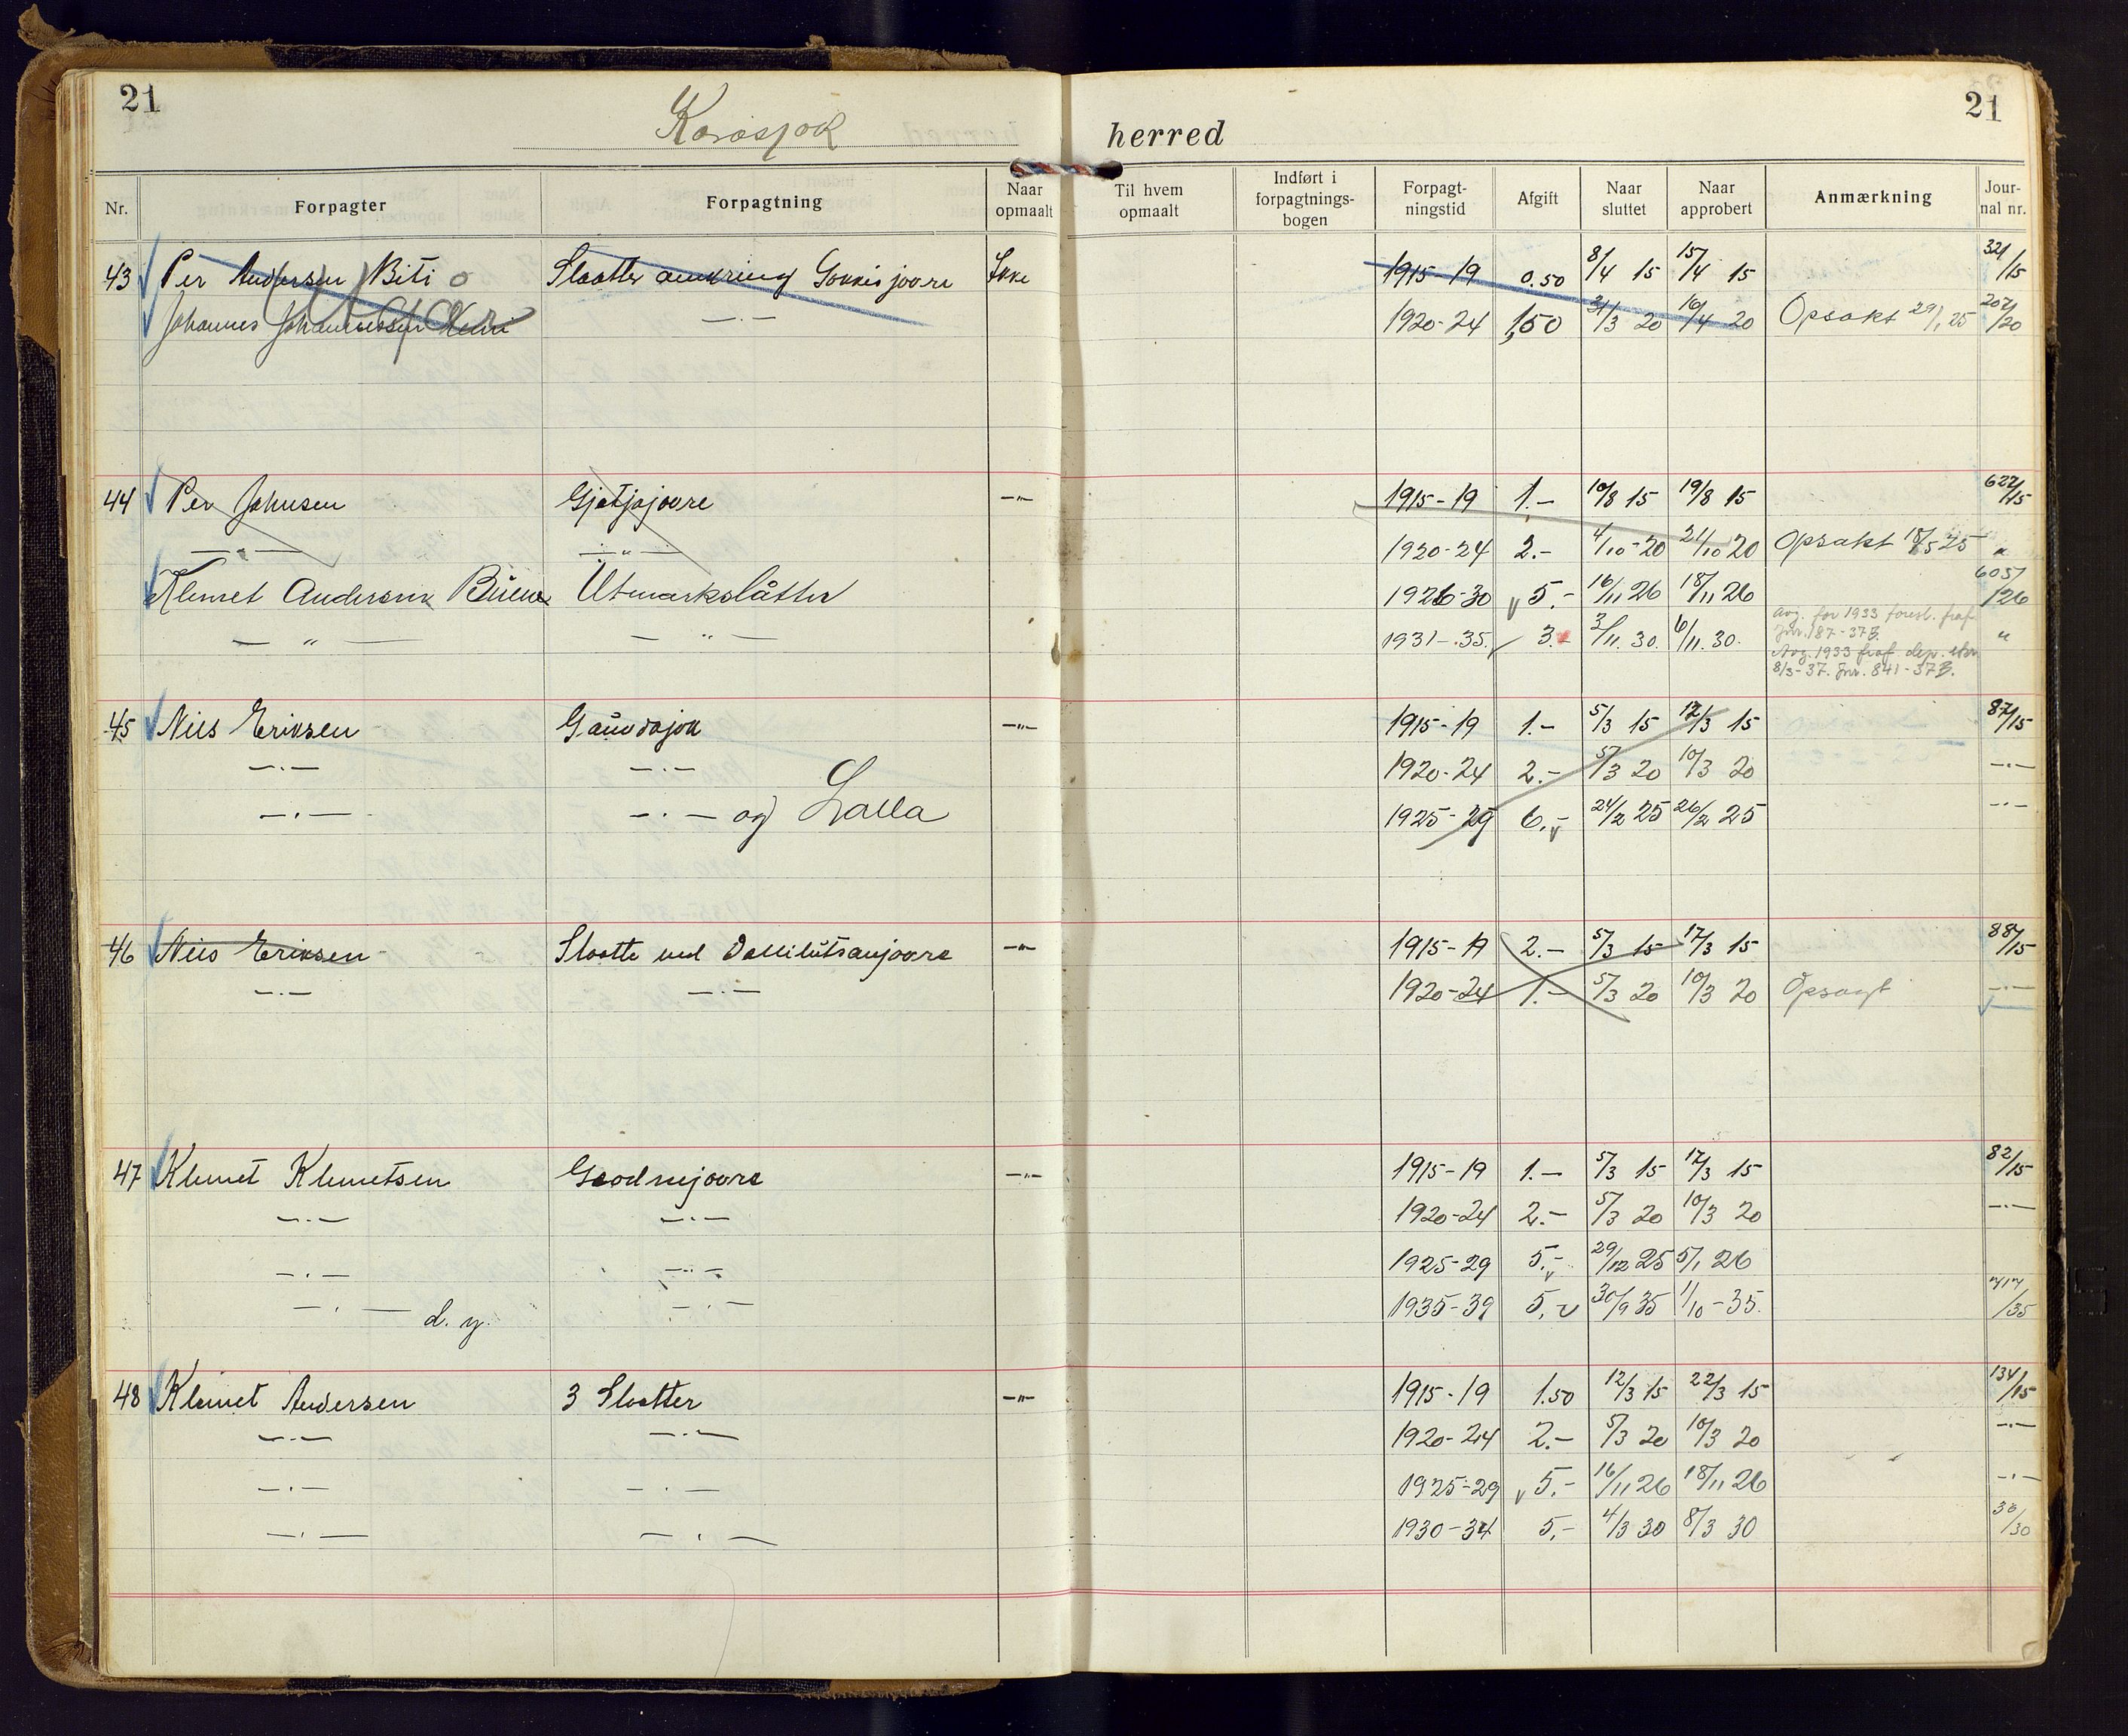 21
Karasjok herred
21
Nr. Forpagter Forpagtning Naar opmaalt Til hvem opmaalt Indført i forpagtnings-bogen Forpagt-ningstid Afgift Naar sluttet Naar approbert Anmærkning Jour-nal nr.
43 Per Andersen Biti Slaatter omkring Gokkisjavre Ikke 1915-19 0.50 8/4 15 15/4 15 321/15
Johannes Johannessen —"— 1920-24 1,50 31/3 20 10/4 20 Opsakt 29/1 25 207/20
44 Per Johnsen Gjetjajavre —"— 1915-19 1.- 10/8 15 19/8 15 622/15
—"— —"— 1920-24 2.- 4/10-20 21/10 20 Opsakt 18/5 25 "
Klemet Andersen Utmarkslåtter 1926-30 5.- 16/11 26 18/11 26 605/126
—"— —"— 1931-35. 3.- 3/11. 30. 6/11. 30. Avg. for 1933 foresl. fraf. "
Jnr. 187-37B.
Avg. 1933 fraf. dep. skr.
8/3-37. Jnr. 841-37B.
45 Nils Eriksen —"— 1915-19 1.- 5/3 15 17/3 15 87/15
—"— —"— 1920-24 2.- 5/3 20 10/3 20 —"—
—"— —"— og Lalla 1925-29 6.- 24/2 25 26/2 25 —"—
46 Nils Eriksen Slaatte ved —"— 1915-19 2.- 5/3 15 17/3 15 88/15
—"— —"— 1920-24 1.- 5/3 20 10/3 20 Opsagt —"—
47 Klemet Klemetsen —"— 1915-19 1.- 5/3 15 17/3 15 82/15
—"— —"— 1920-24 2.- 5/3 20 10/3 20 —"—
—"— —"— 1925-29 5.- 29/12 25 5/1 26
—"— d. y. —"— 1935-39 5,- 30/9 35 1/10-35. 717/35
48 Klemet Andersen 3 Slaatter —"— 1915-19 1.50 12/3 15 22/3 15 134/15
—"— —"— 1920-24 2.- 5/3 20 10/3 20 —"—
—"— —"— 1925-29 5.- 16/11 26 18/11 26 —"—
—"— —"— 1930-34 5,- 4/3 30 8/3 30 /30